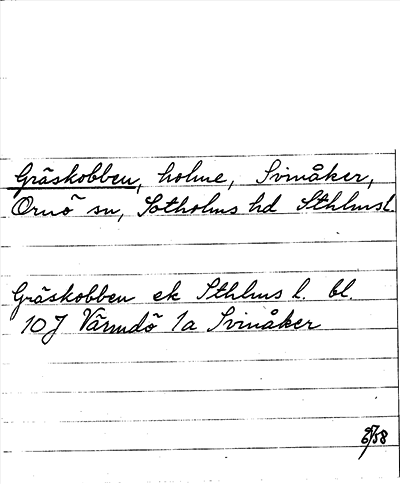 Gräskobben, holme, Svinåker,
Ornö sn, Sotholms hd Sthlmsl.
Gräskobben ek Sthlms l. bl.
10J Värmdö 1a Svinåker